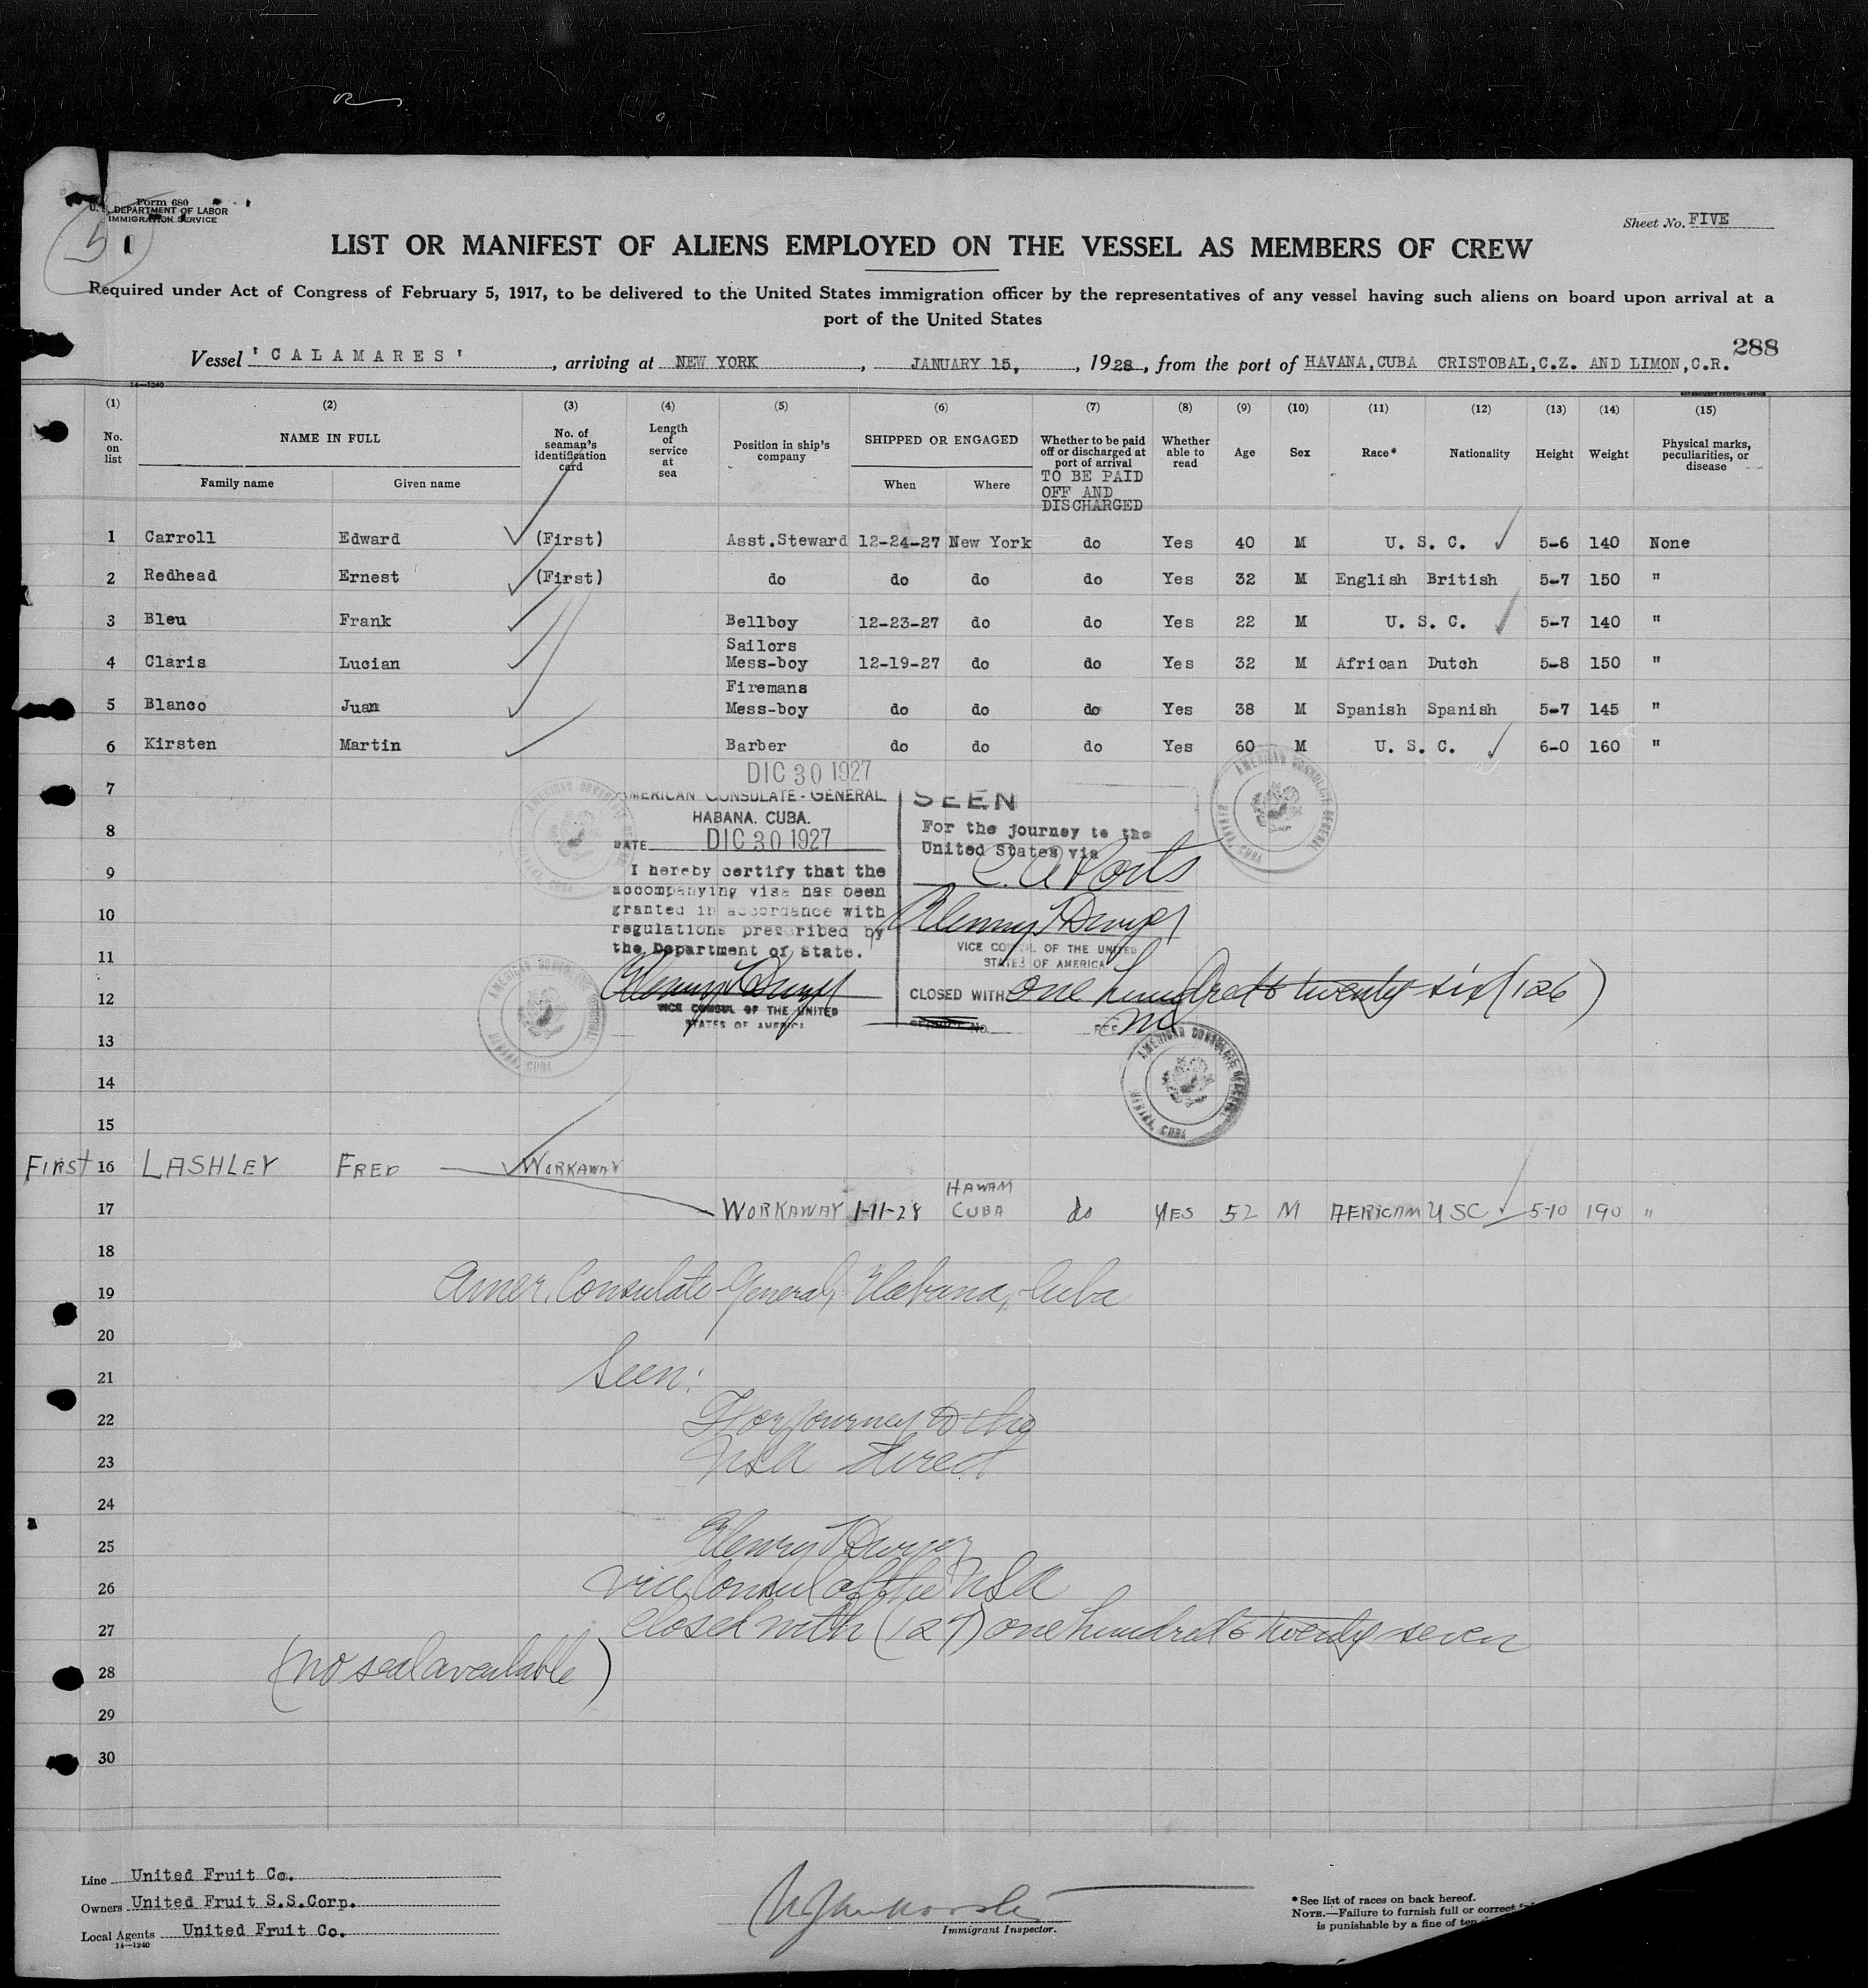 Form 680
U. S. DEPARTMENT OF LABOR
IMMIGRATION SERVICE
5
Sheet No. FIVE
LIST OR MANIFEST OF ALIENS EMPLOYED ON THE VESSEL AS MEMBERS OF CREW
Required under Act of Congress of February 5, 1917, to be delivered to the United States immigration officer by the representatives of any vessel having such aliens on board upon arrival at a
port of the United States
288
Vessel 'CALAMARES', arriving at NEW YORK, JANUARY 15, 1928, from the port of HAVANA, CUBA CRISTOBAL, C.Z. AND LIMON, C.R.
14—1240
GOVERNMENT PRINTING OFFICE
(1) (2) (3) (4) (5) (6) (7) (8) (9) (10) (11) (12) (13) (14) (15)
No. on list
NAME IN FULL
Family name
Given name
No. of seaman's identification card
Length of service at sea
Position in ship's company
SHIPPED OR ENGAGED
When
Where
Whether to be paid off or discharged at port of arrival
TO BE PAID OFF AND DISCHARGED
Whether able to read
Age
Sex
Race*
Nationality
Height
Weight
Physical marks, peculiarities, or disease
1 Carroll Edward (First) Asst.Steward 12-24-27 New York do Yes 40 M U. S. C. 5-6 140 None
2 Redhead Ernest (First) do do do do Yes 32 M English British 5-7 150 "
3 Bleu Frank Bellboy 12-23-27 do do Yes 22 M U. S. C. 5-7 140 "
4 Claris Lucian Sailors Mess-boy 12-19-27 do do Yes 32 M African Dutch 5-8 150 "
5 Blanco Juan Firemans Mess-boy do do do Yes 38 M Spanish Spanish 5-7 145 "
6 Kirsten Martin Barber do do do Yes 60 M U. S. C. 6-0 160 "
DIC 30 1927
7
AMERICAN CONSULATE-GENERAL.
HABANA. CUBA.
DATE DIC 30 1927
I hereby certify that the
accompanying visa has been
granted in accordance with
regulations prescribed by
the Department of State.
VICE CONSUL OF THE UNITED
STATES OF AMERICA
SEEN
For the journey to the
United States via
C. A Ports
Henry T Dwyer
VICE CONSUL OF THE UNITED
STATES OF AMERICA
CLOSED WITH one hundred & twenty-six (126)
SERVICE NO. FEE
AMERICAN CONSULATE GENERAL
HABANA, CUBA
8
9
10
11
12
13
14
15
First 16 LASHLEY FRED WORKAWAY
17 WORKAWAY 1-11-28 CUBA do YES 52 M AFRICAN USC 5-10 190 "
18
19 Amer. Consulate General, Habana, Cuba
20
21 Seen:
22 For journey to the
23 USA direct
24
25 Henry T Dwyer
26 Vice Consul of the USA
27 Closed with (127) one hundred & twenty seven
28 (no seal available)
29
30
Line United Fruit Co.
Owners United Fruit S.S.Corp.
Local Agents United Fruit Co.
14—1240
Immigrant Inspector.
*See list of races on back hereof.
NOTE.—Failure to furnish full or correct
is punishable by a fine of ten